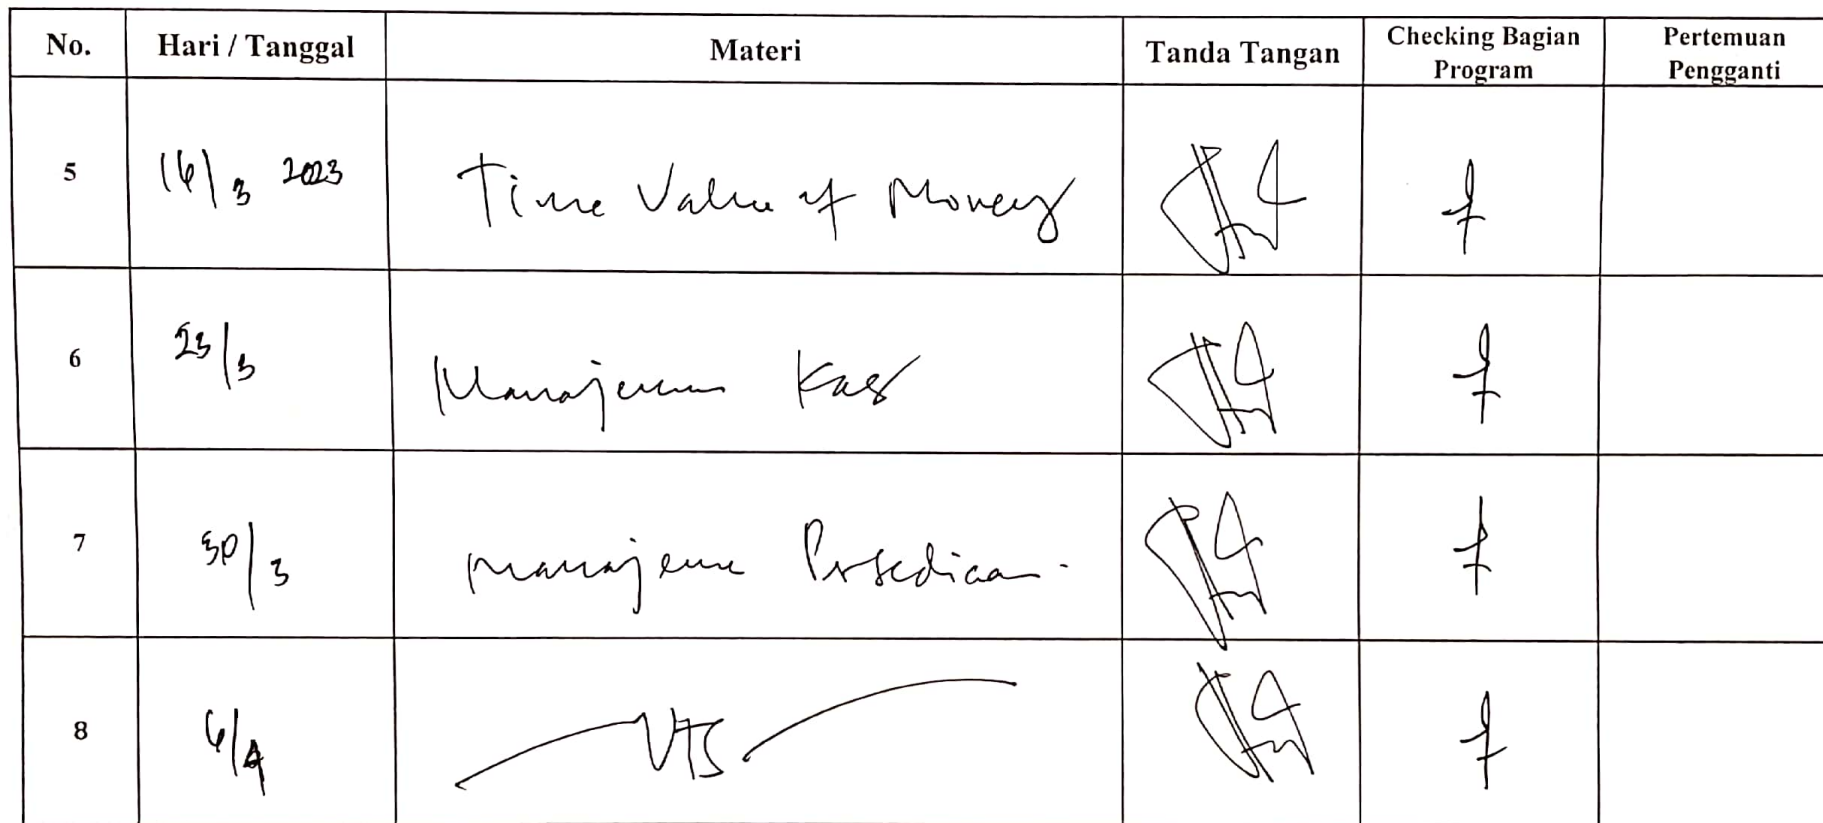 No. Hari / Tanggal Materi Tanda Tangan Checking Bagian Program Pertemuan Pengganti
5 16/3 2023 Time Value of Money
6 23/3 Manajemen Kas
7 30/3 Manajemen Persediaan.
8 6/4 UTS